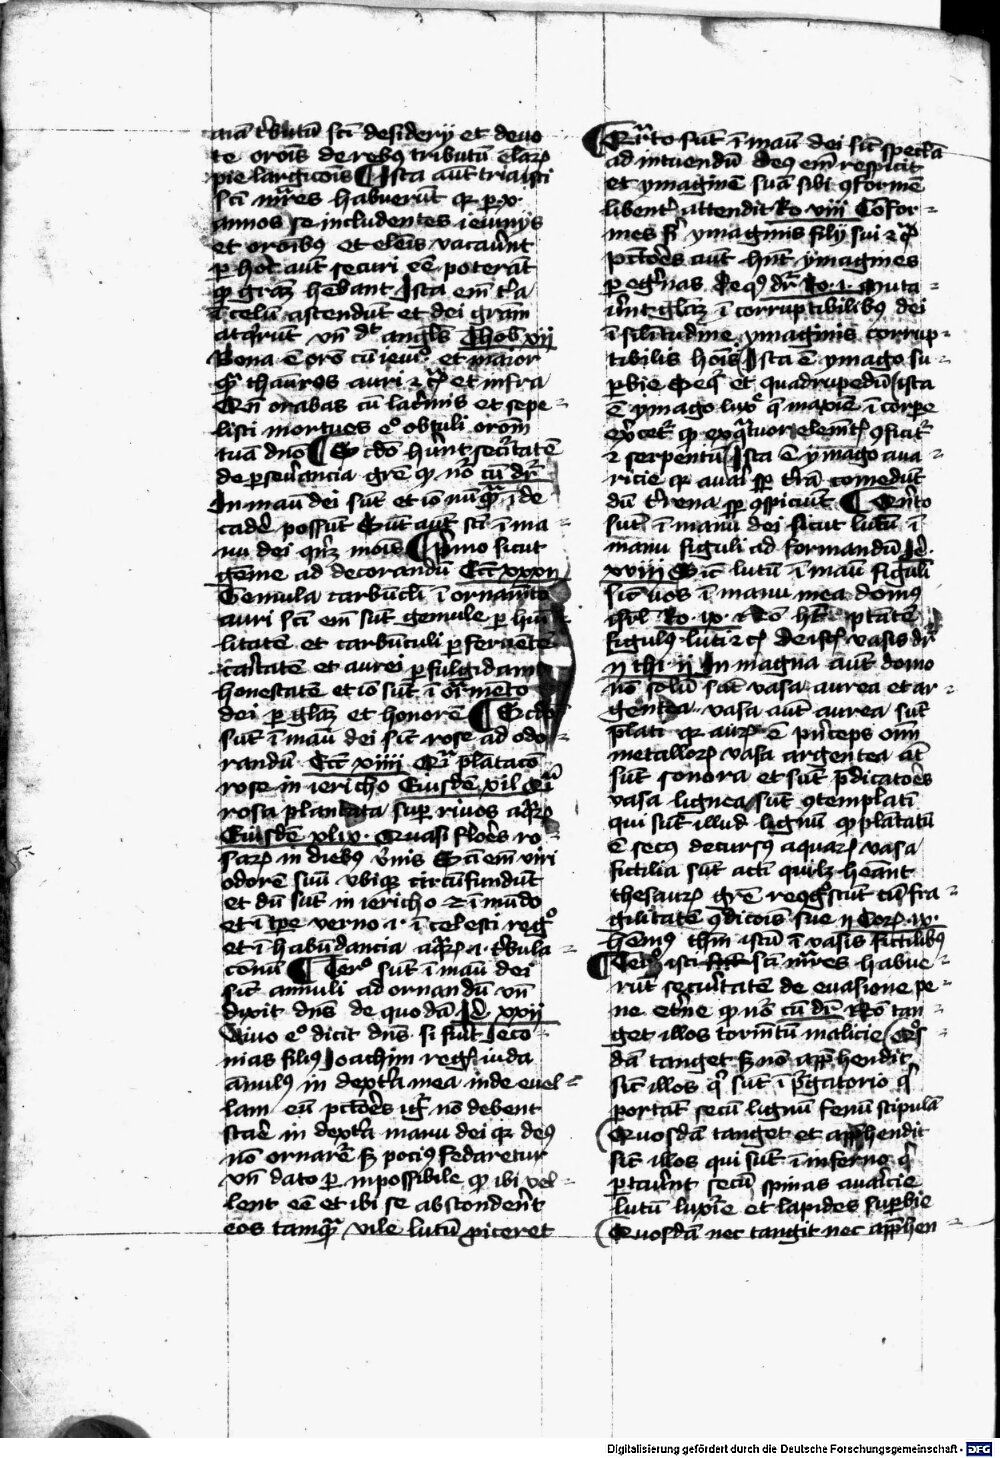 aīa t'butū scī desiderij et deuo
te orōis de reb9 tributū elarꝫ
pie largicōis ¶ Ista aūt tria isti
scī m̄res habuerūt qꝛ p x
annos se includentes ieiunijs
et orōib9 et elēis vacauer̄t
p hoc aūt securi eē poterāt
qꝫ graꝫ hēbant Ista em̄ t'a
ī celū ascendūt et dei gram
atq'rūt vn̄ dt angl9 Thob xij
Bona ē orō cū ieiu° et maior
qᵃ thauros auri ⁊ cꝫ et infra
Qn̄ orabas cū lac'mis et sepe
listi mortuos e° obtuli orom̄
tuā dn̄o ¶ Scd̄o h'unt sec'itatē
de p̱seu'ancia gr̄e qꝫ nō cū dr̄
In manū dei sūt et iō nūqᵃ īde
cader̄ possūt Sūt aūt scī ī ma
nu dei q̄rꝫ mōis ¶ Primo sicut
gēme ad decorandū Ecc̄ xxxij
Gemula carbūcl'i ī ornamēto
auri scī em̄ sūt gemule p hūi
litatē et carbūculi p feruētē
caritatē et aurei p fulgidam
honestatē et iō sūt ī or̄mēto
dei p gl'aꝫ et honorē ¶ Scd̄o
sūt ī manū dei sic̄ rose ad odo
randū Ecc̄ xiiij Qᵃ plātacō
rose in iericho Eiusdē xxl Qᵃ
rosa plantata sup riuos aq̄rꝫ
Eiusdē xlix Quasi flores ro
sarꝫ in dieb9 v'nis Scī em̄ viri
odorē suū vbiqꝫ circūfundūt
et dū sūt in iericho .i. ī mūdo
et ī tp̄e verno .i. ī celesti reg°
et ī habūdancia aq̄rꝫ .i. t'bula
conū ¶ Terᵒ sūt ī manū dei
sic̄ annuli ad ornandū vn̄
dixit dn̄s de quodā Je xxij
Viuo e° dicit dn̄s si fu'it Jeco
nias fili9 Joachim regꝭ iuda
ānul9 in dext'a mea inde euel
lam eū pctōes igr̄ nō debent
stare in dext'a manu dei qꝛ de9
nō ornare sꝫ poci9 fedaretur
vn̄ dato p inpossibile qꝫ ibi vel
lent eē et ibi se absconder̄t
eos tamqᵃ vile lutū piceret
¶ Qrto sūt ī manū dei sic̄ speclā
ad intuendū de9 em̄ respicit
et ymaginē suā sibi ꝯformē
libent' attendit Ro viij Cōfor
mes fi' ymaginis filij sui ⁊ cꝫ
pctōes aūt hn̄t ymagines
p egᵃnas De q9 dr̄ Ro .i. Muta
u'unt gl'aꝫ ī corruptibilib9 dei
ī sil'itudine ymaginis corrup
tibilis hōis Ista ē ymago su
p̱bie Deqꝫ et quadrupedū ista
ē ymago lux'e q̄ maxiē ī corpe
ex'cet' qꝫ ex qᵃtuor elemētꝭ ꝯficit'
⁊ serpentū Ista ē ymago aua
ricie qꝛ auari sp t'rā comedūt
dū t'rena sp ꝯspiciūt ¶ Qnto
sūt ī manu dei sicut lutū ī
manu figuli ad formandū Je
xviij Sic̄ lutū ī manū figuli
sic̄ vos ī manu mea dom9
isrl Ro ix Nō ht' ptātē
figul9 luti ⁊ cꝫ De istꝭ vasis dr̄
ij thi ij In magna aūt domo
nō solū sūt vasa aurea et ar
gentea vasa aūt aurea sūt
plati qꝛ aurꝫ ē p'nceps om̄
metallorꝫ vasa argentea at̄
sūt sonora et sūt p̄dicatoēs
vasa lignea sūt ꝯtemplatī
qui sūt illud lignū qꝫ plātatū
ē sec9 decurs9 aquarꝫ vasa
fictilia sūt acti quilꝫ hēant
thesaurꝫ gr̄e reqᵉscūt cū fra
gilitatē ꝯdicōis sue ij Corꝫ iv
hēm9 thm̄ istū ī vasis fictilib9
¶ Tercᵒ isti scī m̄res habue
rūt secu'itatē de euasione pe
ne et'ne qꝫ nō cū dr̄ Nō tan
get illos tormētū malicie Qᵒs
dā tanget sꝫ nō app̄hendit
sic̄ illos qⁱ sūt ī p'gatorio qⁱ
portāt secū lignū fenū stipulā
Quosdā tanget et app̄hendit
sic̄ illos qui sūt ī inferno qⁱ
p̱tauer̄t secū spinas auar'cie
lutū lux'ie et lapides sup̱bie
Quosdā nec tangit nec app̄hen
Digitalisierung gefördert durch die Deutsche Forschungsgemeinschaft - DFG